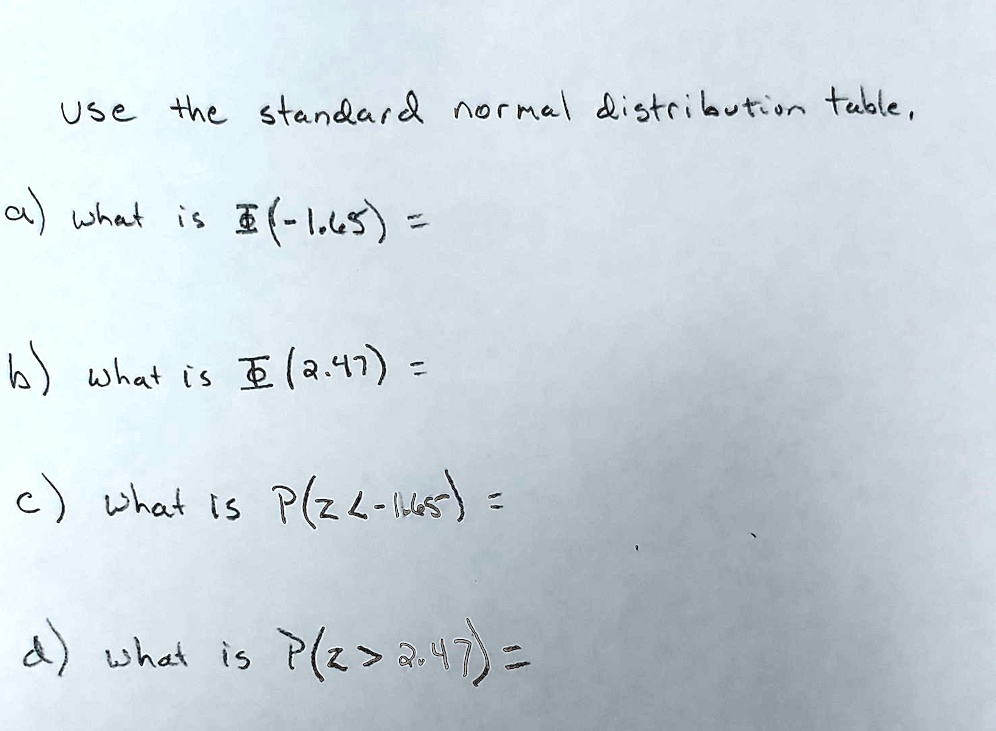 Use the standard normal distribution table.
a) what is Φ(-1.65) =
b) what is Φ(2.47) =
c) what is P(z<-1.65) =
d) what is P(z > 2.47) =